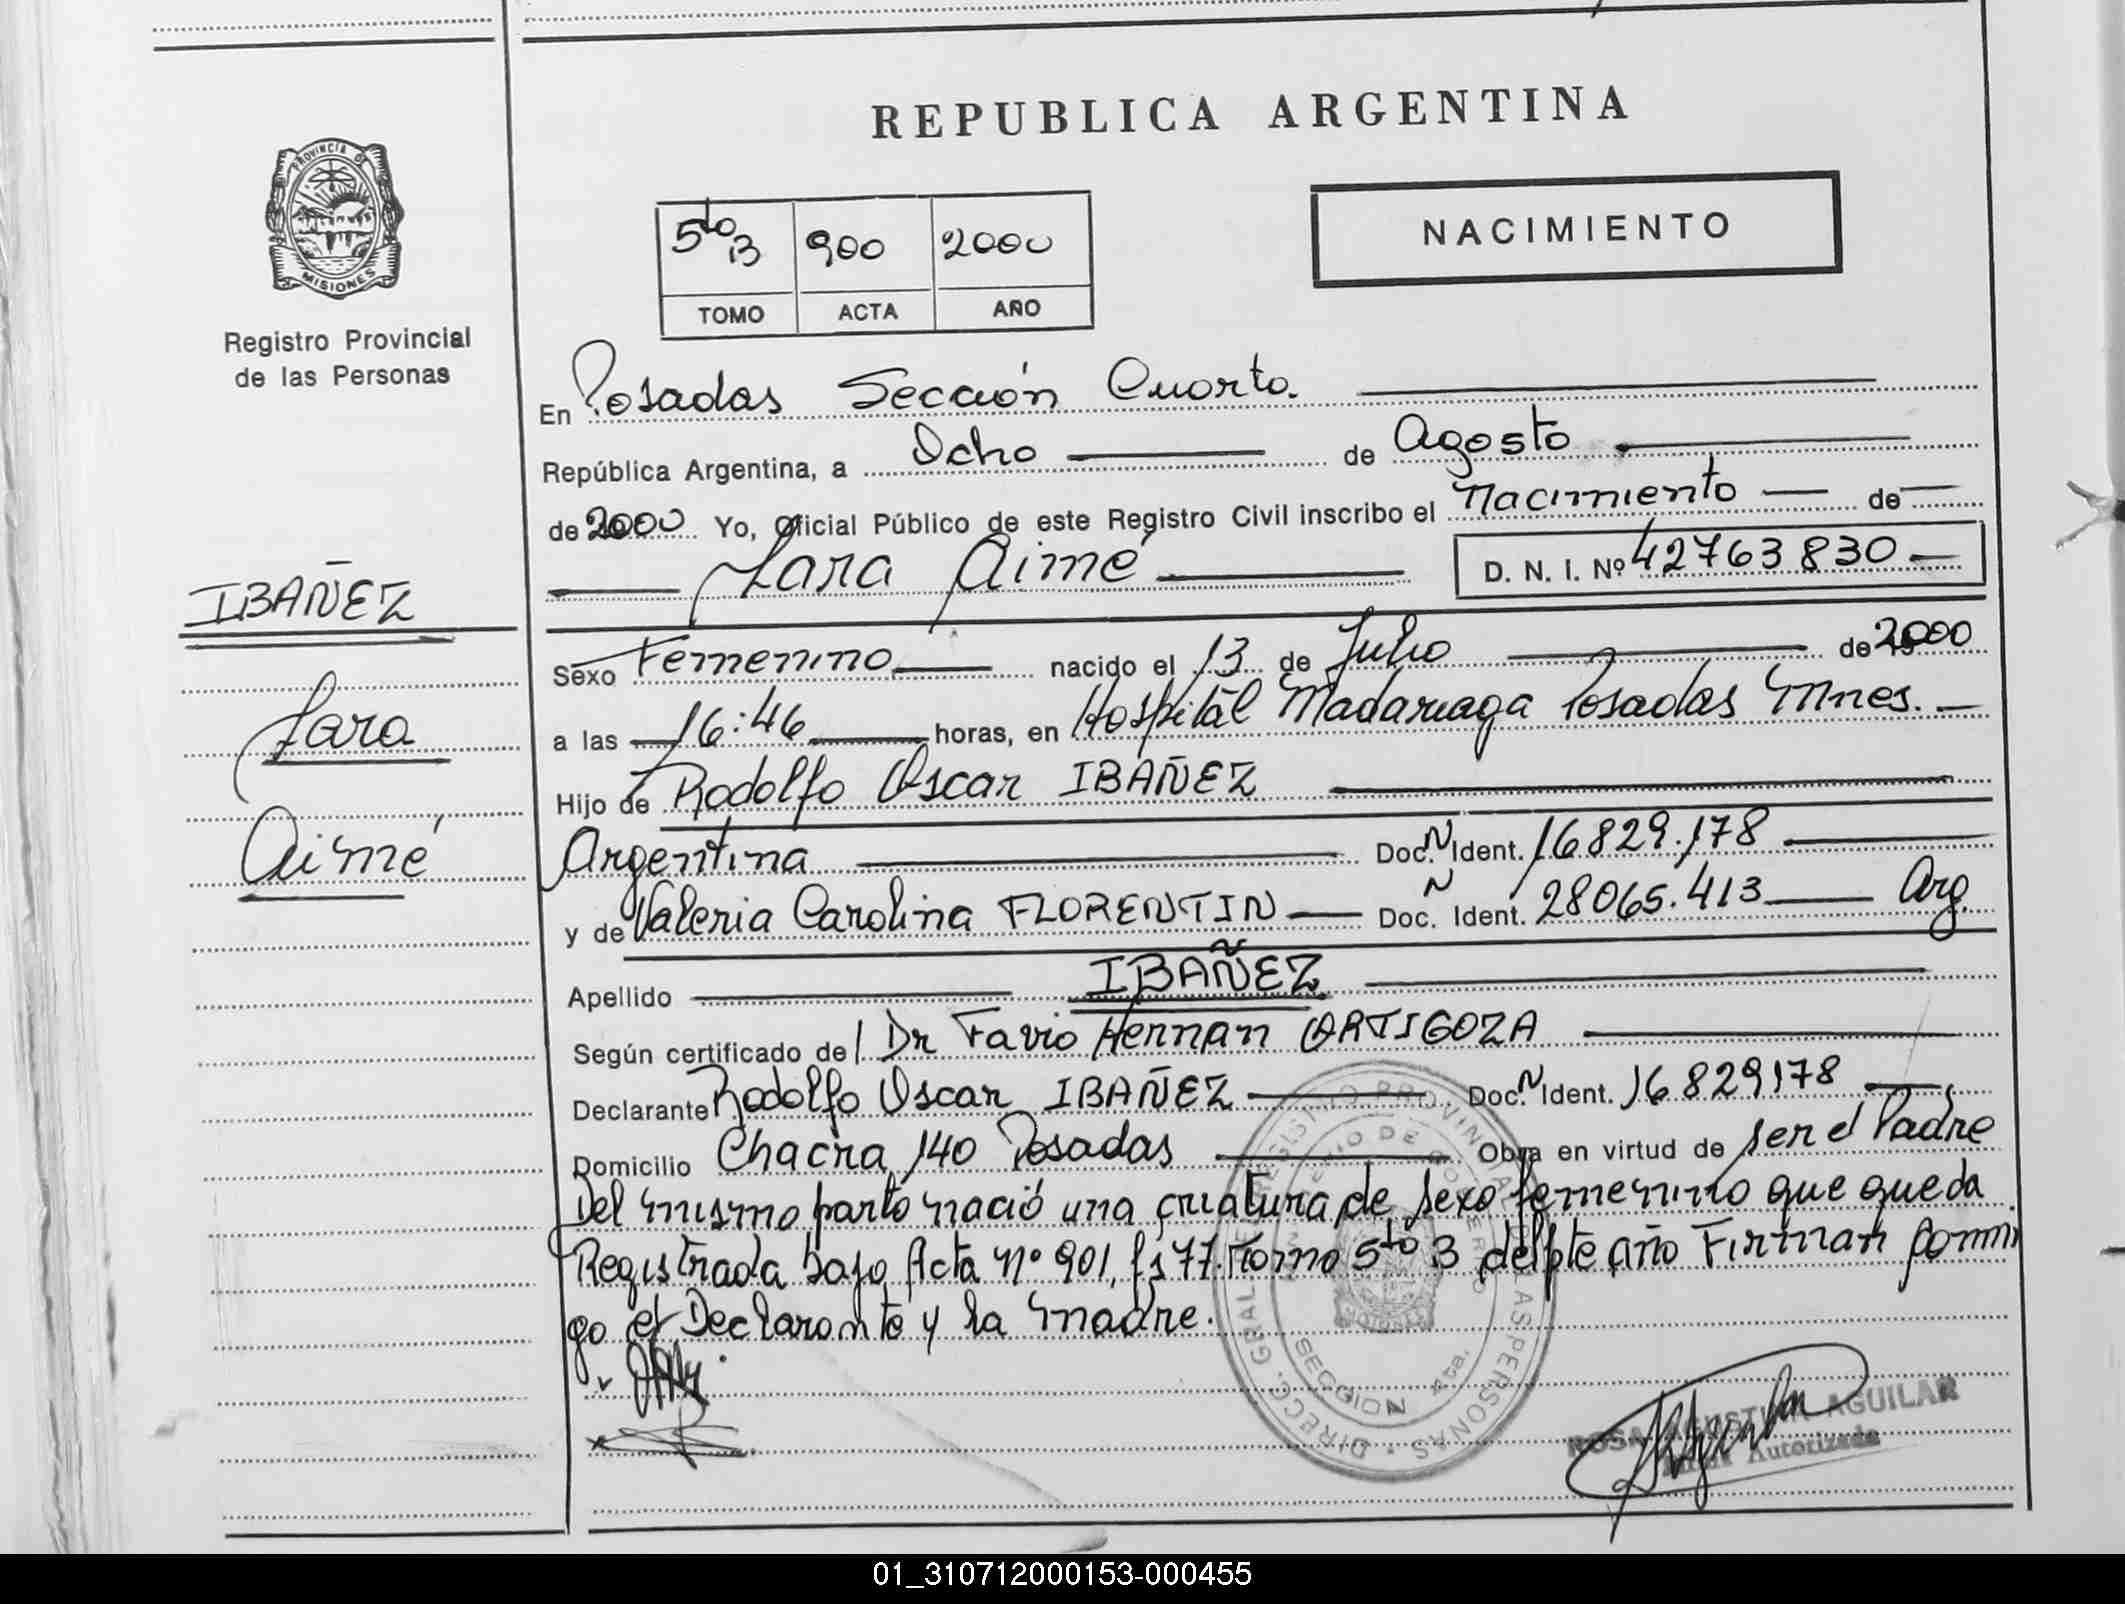 REPUBLICA ARGENTINA
PROVINCIA DE
MISIONES
Registro Provincial
de las Personas
NACIMIENTO
5to 3 900 2000
TOMO ACTA AÑO
En Posadas Sección Cuarta.
República Argentina, a Ocho de Agosto
de 2000 Yo, Oficial Público de este Registro Civil inscribo el Nacimiento de
Lara Aimé D. N. I. Nº 42763830
IBAÑEZ
Lara
Aimé
Sexo Femenino nacido el 13 de Julio de 2000
a las 16:46 horas, en Hospital Madariaga Posadas Mnes.
Hijo de Rodolfo Oscar IBAÑEZ
Argentina Doc. N Ident. 16.829.178
y de Valeria Carolina FLORENTIN Doc. N Ident. 28065.413 Arg.
Apellido IBAÑEZ
Según certificado del Dr Favio Hernan ORTIGOZA
Declarante Rodolfo Oscar IBAÑEZ Doc. N Ident. 16829178
Domicilio Chacra 140 Posadas Obra en virtud de ser el Padre
Del mismo parto nació una criatura de sexo femenino que queda
Registrada bajo Acta nº 901, fs 77. Tomo 5to 3 del pte año Firman conmi
go el Declarante y la madre.
DIRECC. GRAL DE REGISTRO PROVINCIAL DE LAS PERSONAS
MINISTERIO DE GOBIERNO
SECCION 4ta.
ROSA AGUSTINA AGUILAR
Autorizada
01_310712000153-000455